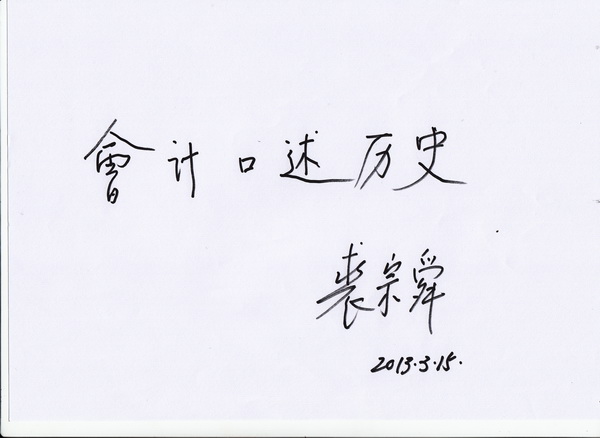 會计口述历史
裘宗舜
2013.3.15.